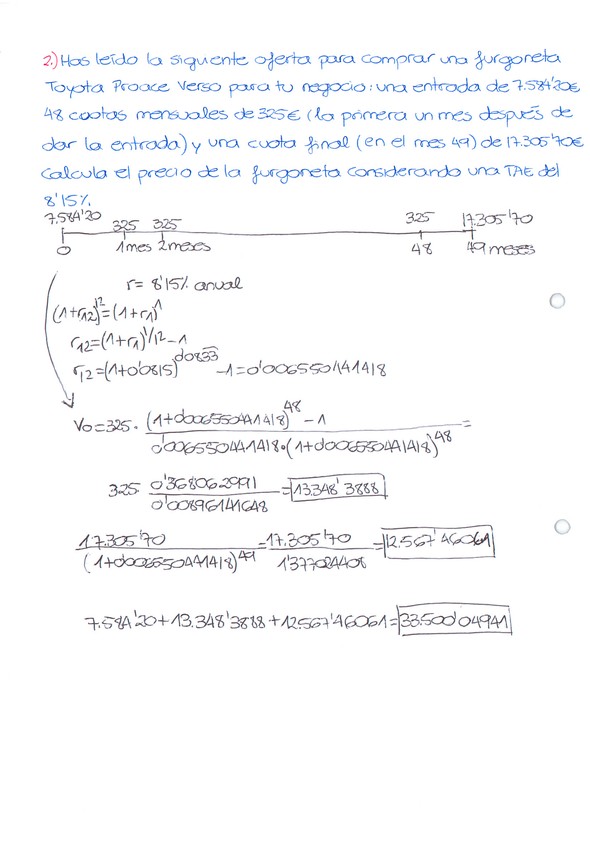 2.) Has leído la siguiente oferta para comprar una furgoneta
Toyota Proace Verso para tu negocio: una entrada de 7.584'20€
48 cuotas mensuales de 325€ (la primera un mes después de
dar la entrada) y una cuota final (en el mes 49) de 17.305'70€
Calcula el precio de la furgoneta considerando una TAE del
8'15%.
7.584'20 325 325 325 17.305'70
0 1mes 2meses 48 49 meses
r= 8'15% anual
(1+r12)^12=(1+r1)^1
r12=(1+r1)^1/12-1
r12=(1+0'0815)^0'0833-1=0'006550441418
V0=325·((1+0'006550441418)^48-1)/(0'006550441418·(1+0'006550441418)^48)=
325 0'368062991/0'00896141648=13.348'3888
17.305'70/(1+0'006550441418)^49=17.305'70/1'377024408=12.567'46061
7.584'20+13.348'3888+12.567'46061=33.500'04941